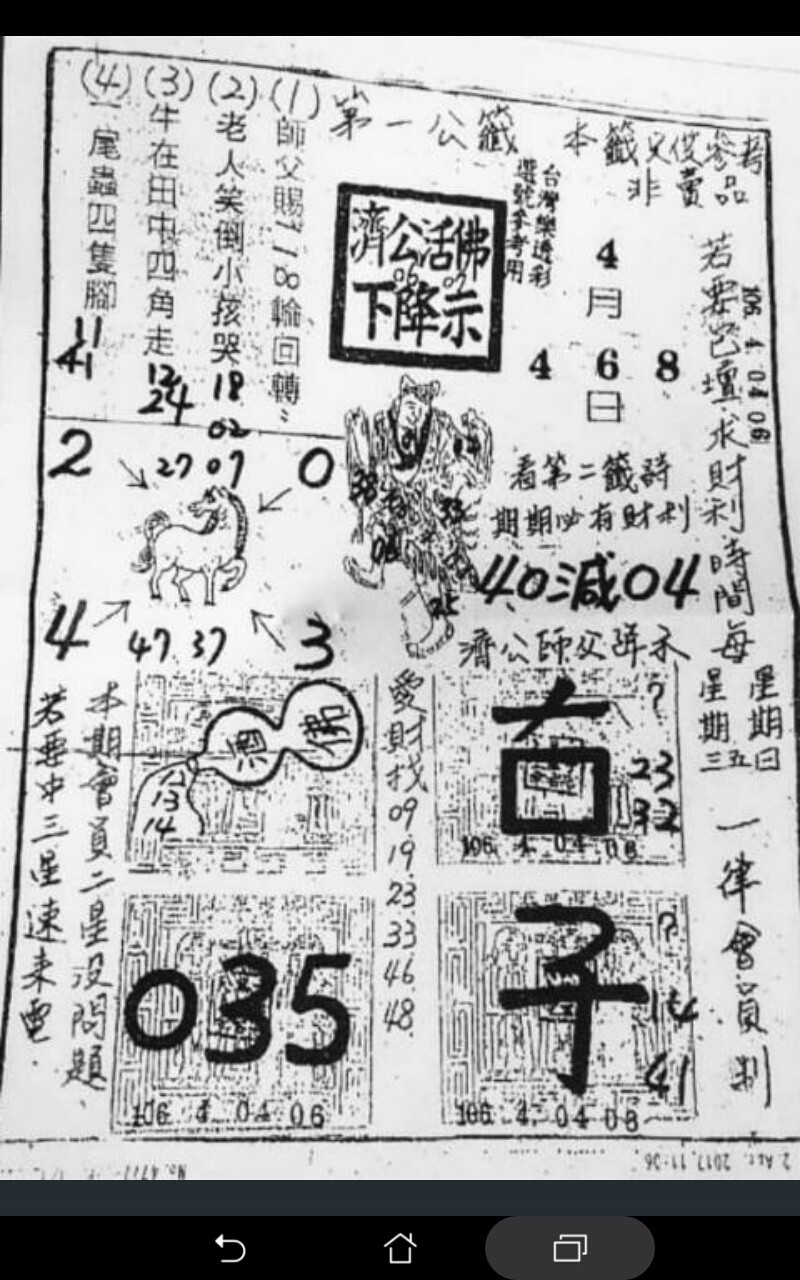 第一公籤
本籤只供參考
非賣品
(1)師父賜118輪回轉
(2)老人笑倒小孩哭
(3)牛在田中四角走
(4)一尾蟲四隻腳
18
02
07
12
24
11
41
濟公活佛
下降示
台灣樂透彩
選號參考用
4月
4 6 8
日
106. 4. 04 06
看第二籤詩
期期必有財利
40減04
濟公師父降示
2
0
4
3
27
47 37
38
33
25
若要包壇求財利時間每
星期三五
星期日
一律會員制
本期會員二星沒問題
若要中三星速來電
佛
12
13
14
愛財找
09
19
23
33
46
48
?
23
32
106. 4. 04 06
035
106. 4. 04 06
子
?
14
41
106. 4. 04 06